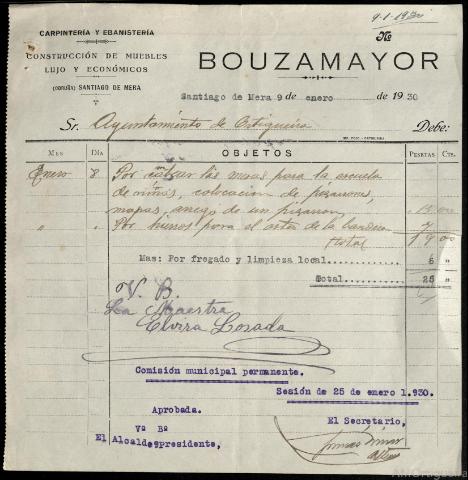 9-1-1930
CARPINTERÍA Y EBANISTERÍA
CONSTRUCCIÓN DE MUEBLES
LUJO Y ECONÓMICOS
(CORUÑA) SANTIAGO DE MERA
Nº
BOUZAMAYOR
Santiago de Mera 9 de enero de 1930
Sr. Ayuntamiento de Ortigueira Debe:
MES DÍA OBJETOS PESETAS CTS.
Enero 8 Por calzar las mesas para la escuela
de niñas, colocacion de pizarrones,
mapas, arreglo de un pizarron 15 00
" " Por hierros para el asta de la bandera 4 "
Total 19 00
Mas: Por fregado y limpieza local 6 "
Total 25 "
V. B.
La Maestra
Elvira Losada
Comisión municipal permanente.
Sesión de 25 de enero 1.930.
Aprobada.
Vº Bº
El Alcalde-presidente,
El Secretario,